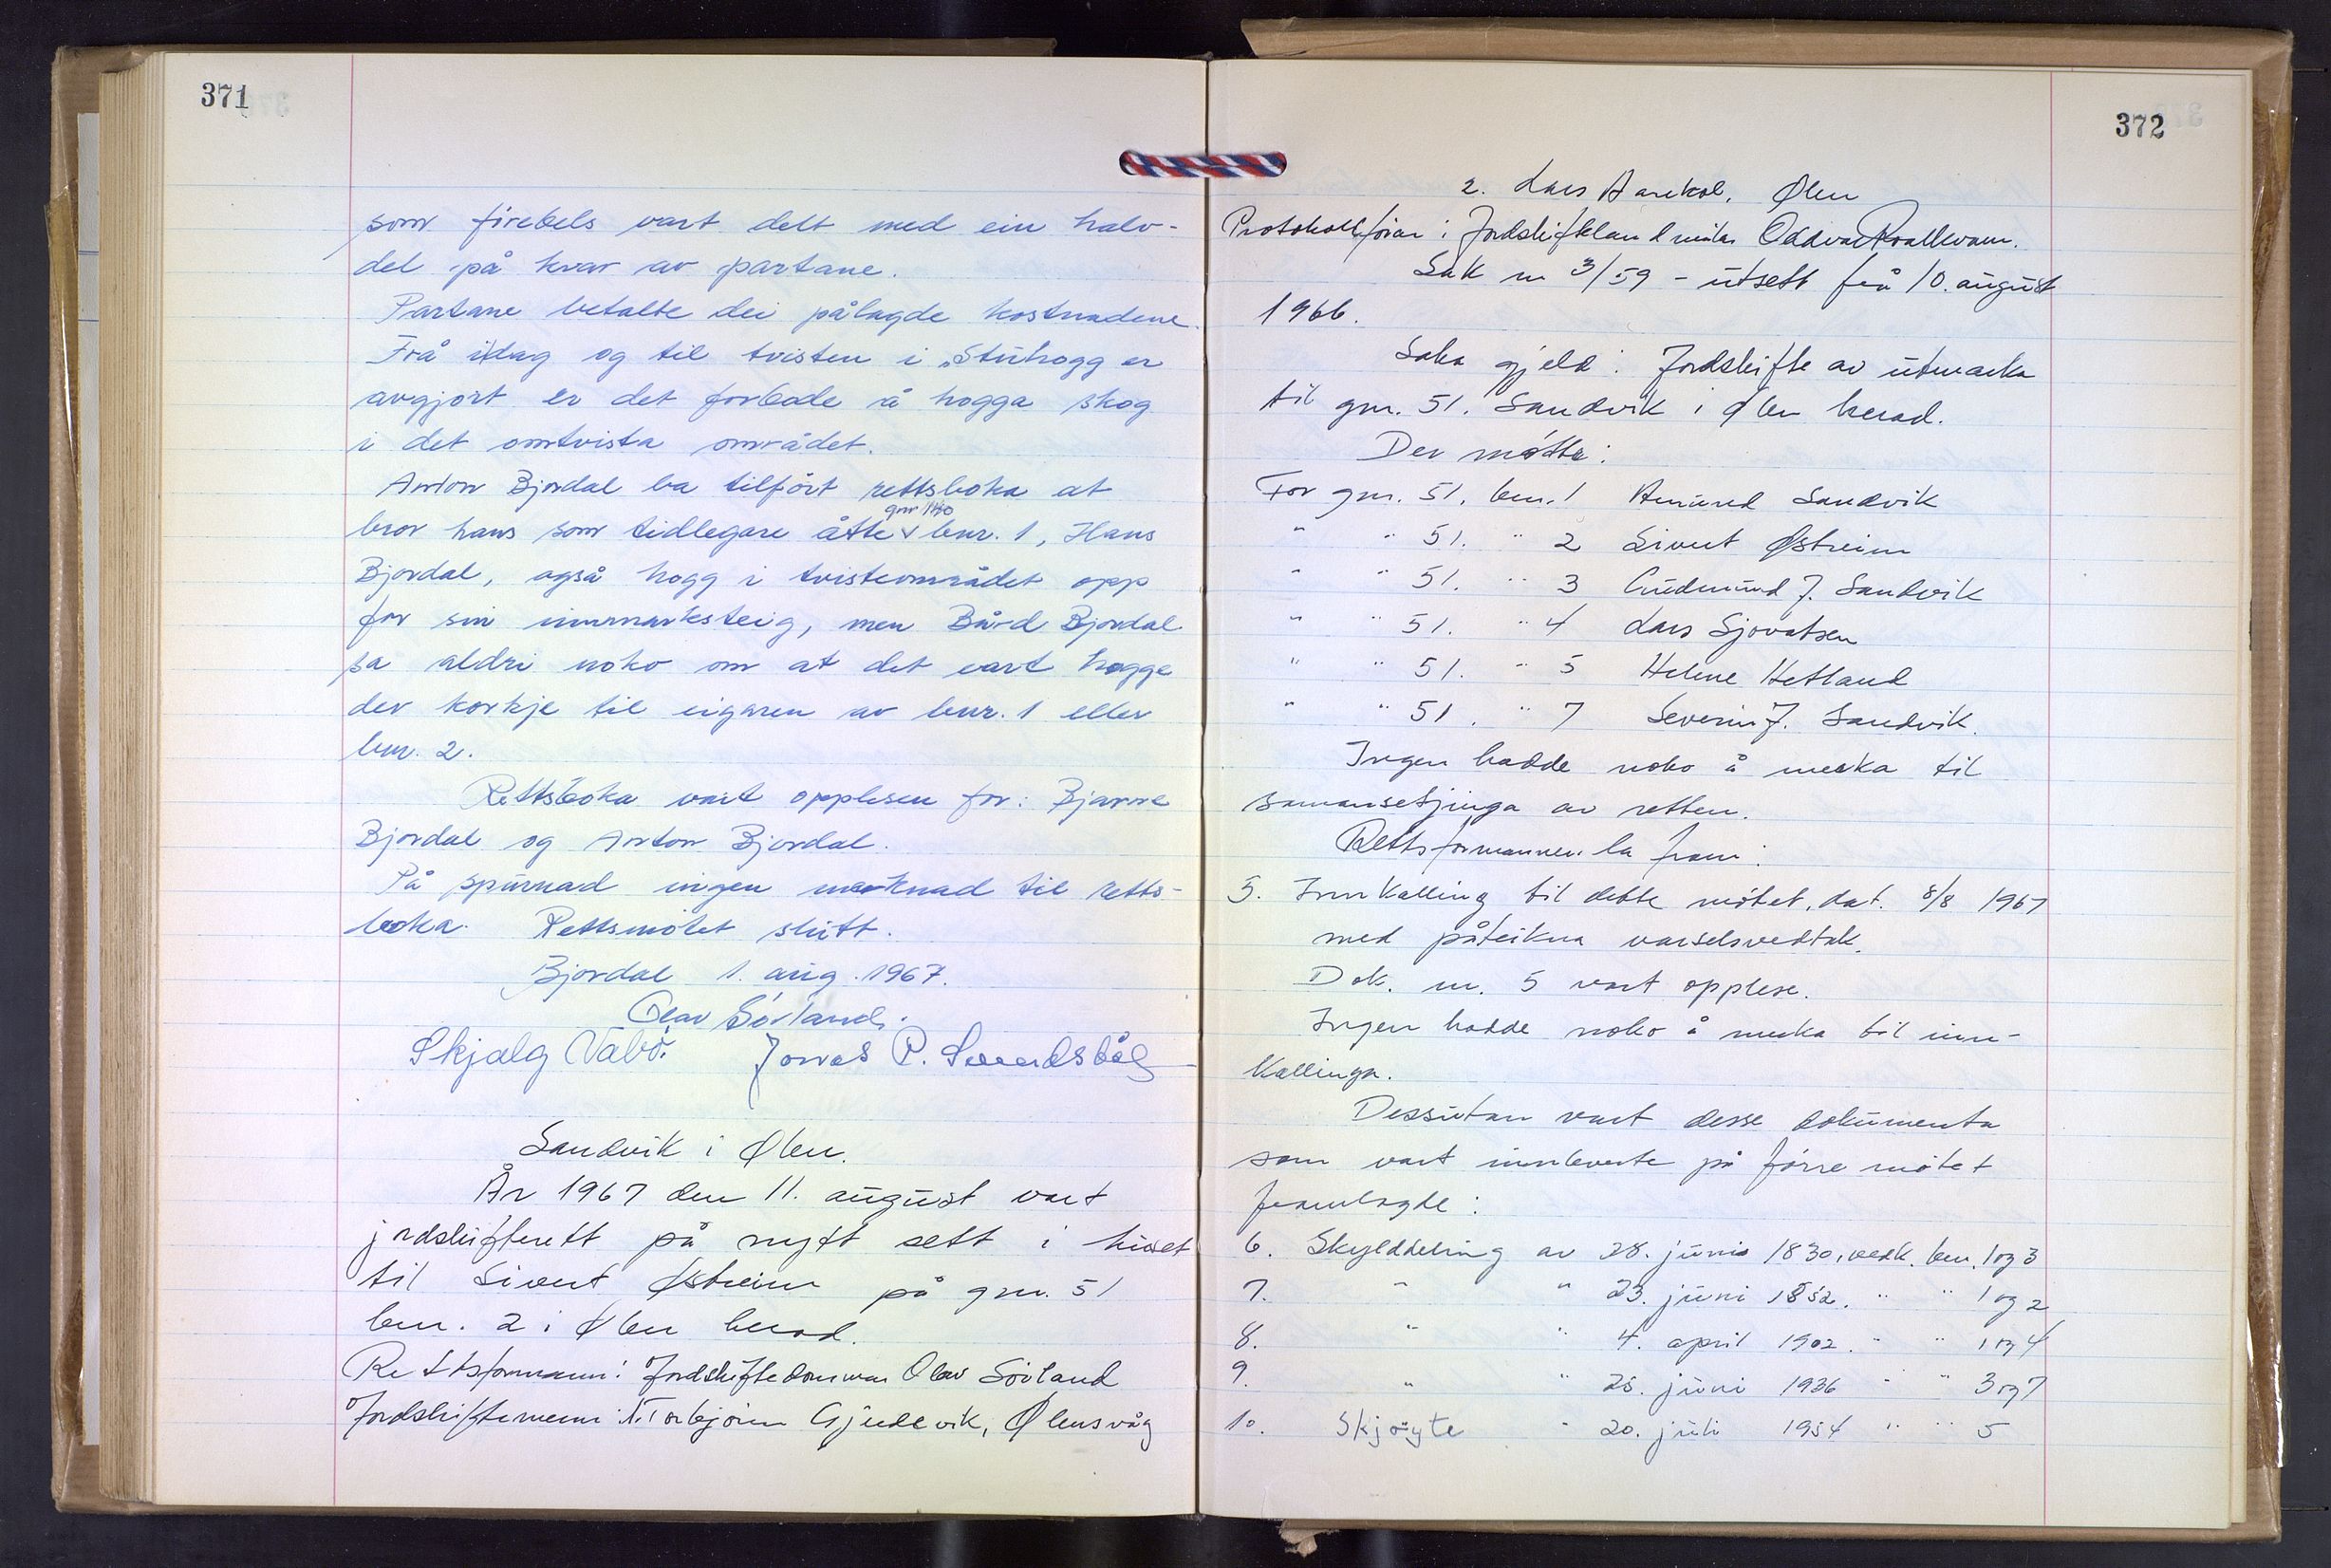 371
som firebels vart delt med ein halv-
del på kvar av partane.
Partane betalte dei pålagde kostnadene.
Frå idag og til tvisten i "Stuhogg er
avgjort er det forbode å hogga skog
i det omtvista området.
Anton Bjordal ba tilført rettsboka at
gnr 140
bror hans som tidlegare åtte v bnr. 1, Hans
Bjordal, også hogg i tvisteområdet opp
for sin innmarksteig, men Bård Bjordal
sa aldri noko om at det vart hogge
der korkje til eigaren av bnr. 1 eller
bnr. 2.
Rettsboka vart opplesen for: Bjarne
Bjordal og Anton Bjordal.
På spurnad ingen merknad til retts-
boka. Rettsmøtet slutt.
Bjordal 1. aug. 1967.
Olav Sørland.
Skjalg Vabø. Jonas P.
Sandvik i Ølen.
År 1967 den 11. august vart
jordskifterett på nytt sett i huset
til Sivert Østreim på gnr. 51
bnr. 2 i Ølen herad.
Rettsformann: Jordskiftedommar Olav Sørland
Jordskiftemenn: 1. Torbjørn Gjerdevik, Ølensvåg
372
2. Lars Ølen
Protokollførar: Jordskiftelandmålar Oddvar
Sak nr 3/59 - utsett frå 10. august
1966.
Saka gjeld: Jordskifte av utmarka
til gnr. 51. Sandvik i Ølen herad.
Der møtte:
For gnr. 51. bnr. 1 Amund Sandvik
" " 51. " 2 Sivert Østreim
" " 51. " 3 Gudmund J. Sandvik
" " 51. " 4 Lars Sjovatsen
" " 51. " 5 Helene Hetland
" " 51. " 7 Severin J. Sandvik.
Ingen hadde noko å merka til
samansetjinga av retten.
Rettsformannen la fram:
5. Innkalling til dette møtet, dat. 8/8 1967
med påteikna varselsvedtak.
Dok. nr. 5 vart opplese.
Ingen hadde noko å merka til inn-
kallinga.
Dessutan vart desse dokumenta
som vart innleverte på førre møtet
framlagde:
6. Skylddeling av 28. juni 1830, vedk. bnr. 1 og 3
7. " " 23. juni 1852. " " 1 og 2
8. " " 4. april 1902. " " 1 og 4
9. " " 25. juni 1936 " " 3 og 7
10. Skjøyte " 20. juli 1954 " " 5